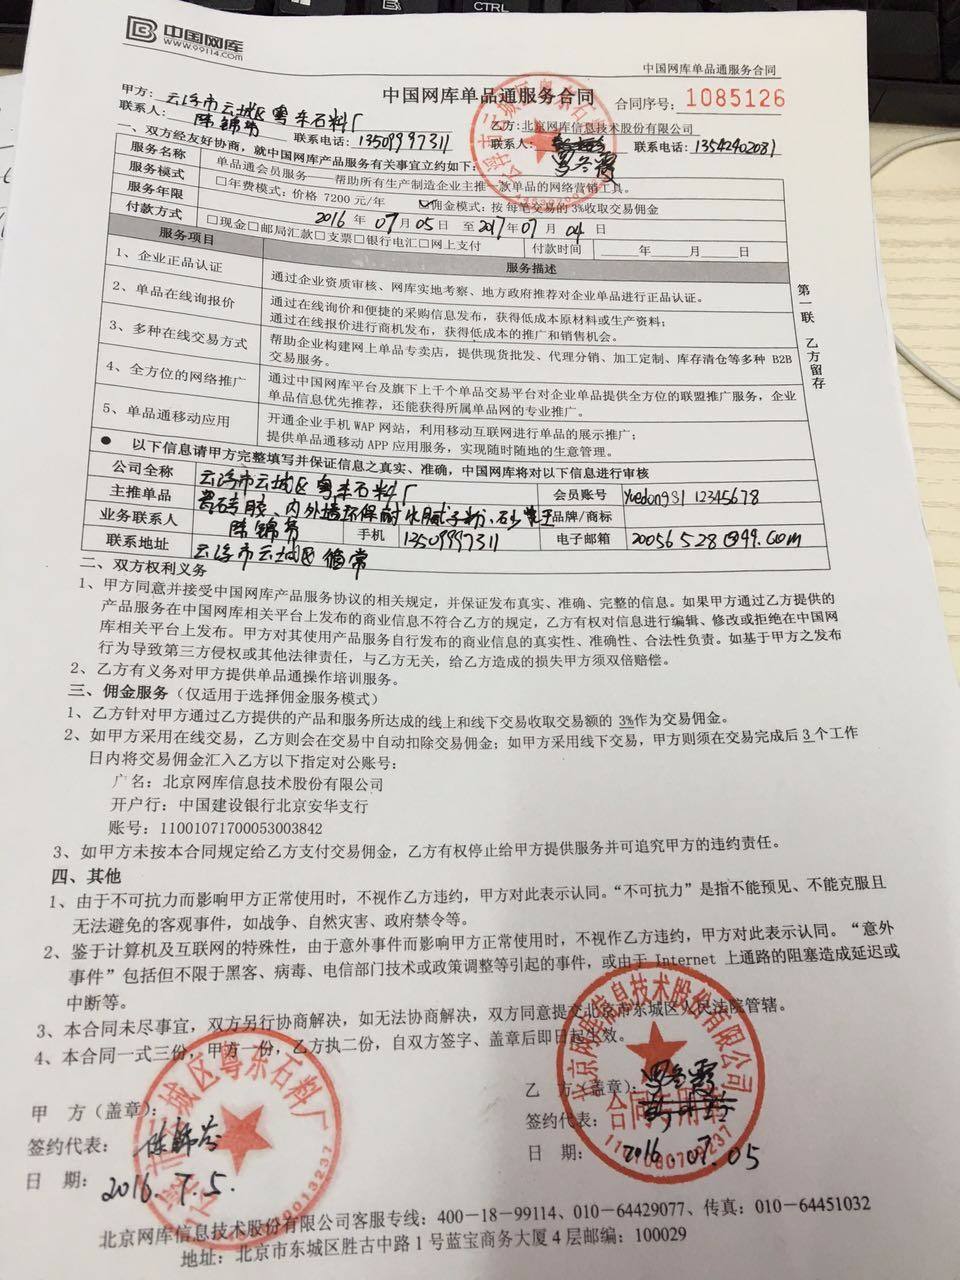 CTRL
中国网库
www.99114.com
中国网库单品通服务合同
中国网库单品通服务合同
合同序号：1085126
甲方：云浮市云城区粤东石料厂
乙方：北京网库信息技术股份有限公司
联系人： 联系电话：13509997311
联系人： 联系电话：13542402081
一、双方经友好协商，就中国网库产品服务有关事宜立约如下：
服务名称 单品通会员服务——帮助所有生产制造企业主推一款单品的网络营销工具。
服务模式 □年费模式：价格 7200 元/年 ☑佣金模式：按每笔交易的3%收取交易佣金
服务年限 2016 年 07 月 05 日 至 2017 年 07 月 04 日
付款方式 □现金□邮局汇款□支票□银行电汇□网上支付 付款时间 年 月 日
服务项目 服务描述
1、企业正品认证 通过企业资质审核、网库实地考察、地方政府推荐对企业单品进行正品认证。
2、单品在线询报价 通过在线询价和便捷的采购信息发布，获得低成本原材料或生产资料；
通过在线报价进行商机发布，获得低成本的推广和销售机会。
3、多种在线交易方式 帮助企业构建网上单品专卖店，提供现货批发、代理分销、加工定制、库存清仓等多种 B2B
交易服务。
4、全方位的网络推广 通过中国网库平台及旗下上千个单品交易平台对企业单品提供全方位的联盟推广服务，企业
单品信息优先推荐，还能获得所属单品网的专业推广。
5、单品通移动应用 开通企业手机 WAP 网站，利用移动互联网进行单品的展示推广；
提供单品通移动 APP 应用服务，实现随时随地的生意管理。
第一联 乙方留存
● 以下信息请甲方完整填写并保证信息之真实、准确，中国网库将对以下信息进行审核
公司全称 云浮市云城区粤东石料厂 会员账号 yuedong981 12345678
主推单品 瓷砖胶、内外墙环保耐水腻子粉、砂浆王 品牌/商标
业务联系人 手机 13509997311 电子邮箱 20056528@99.com
联系地址 云浮市云城区
二、双方权利义务
1、甲方同意并接受中国网库产品服务协议的相关规定，并保证发布真实、准确、完整的信息。如果甲方通过乙方提供的
产品服务在中国网库相关平台上发布的商业信息不符合乙方的规定，乙方有权对信息进行编辑、修改或拒绝在中国网
库相关平台上发布。甲方对其使用产品服务自行发布的商业信息的真实性、准确性、合法性负责。如基于甲方之发布
行为导致第三方侵权或其他法律责任，与乙方无关，给乙方造成的损失甲方须双倍赔偿。
2、乙方有义务对甲方提供单品通操作培训服务。
三、佣金服务（仅适用于选择佣金服务模式）
1、乙方针对甲方通过乙方提供的产品和服务所达成的线上和线下交易收取交易额的 3%作为交易佣金。
2、如甲方采用在线交易，乙方则会在交易中自动扣除交易佣金；如甲方采用线下交易，甲方则须在交易完成后 3 个工作
日内将交易佣金汇入乙方以下指定对公账号：
广名：北京网库信息技术股份有限公司
开户行：中国建设银行北京安华支行
账号：11001071700053003842
3、如甲方未按本合同规定给乙方支付交易佣金，乙方有权停止给甲方提供服务并可追究甲方的违约责任。
四、其他
1、由于不可抗力而影响甲方正常使用时，不视作乙方违约，甲方对此表示认同。“不可抗力”是指不能预见、不能克服且
无法避免的客观事件，如战争、自然灾害、政府禁令等。
2、鉴于计算机及互联网的特殊性，由于意外事件而影响甲方正常使用时，不视作乙方违约，甲方对此表示认同。“意外
事件”包括但不限于黑客、病毒、电信部门技术或政策调整等引起的事件，或由于 Internet 上通路的阻塞造成延迟或
中断等。
3、本合同未尽事宜，双方另行协商解决，如无法协商解决，双方同意提交北京市东城区人民法院管辖。
4、本合同一式三份，甲方一份，乙方执二份，自双方签字、盖章后即日起生效。
甲 方（盖章）：
签约代表：
日 期：2016.7.5.
乙 方（盖章）：
签约代表：
日 期：2016.07.05
北京网库信息技术股份有限公司
合同专用章
北京网库信息技术股份有限公司客服专线：400-18-99114、010-64429077，传真：010-64451032
地址：北京市东城区胜古中路 1 号蓝宝商务大厦 4 层邮编：100029